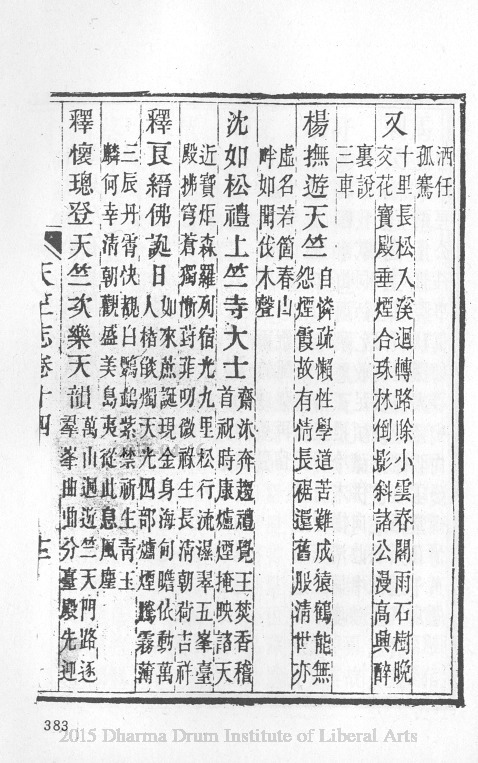 洒任
孤鶩
又 十里長松入溪迴轉路賒小雲春閣雨石樹晚
交花寶殿垂煙合珠林倒影斜諸公漫高興醉
裏說
三車
楊撫遊天竺 自憐疏懶性學道苦難成猿鶴能無
怨煙霞故有情長裾還舊服清世亦
虛名若箇春山
畔如聞伐木聲
沈如松禮上竺寺大士 齋沐奔趨禮覺王焚香稽
首祝時康爐煙掩映諸天
近寶炬森羅列宿光九里松行流濕翠五峯臺
殿拂穹蒼獨慚葑菲叨微祿生長清朝荷吉祥
釋艮縉佛誕日 如來庶誕現金身海甸瞻依動萬
人燄燭天光四部爐煙騰霧藹
三辰丹霄快覩白鸚鵡紫禁祈生青玉
麟何幸清朝觀盛美島夷從此息風塵
釋懷璁登天竺次樂天韻 萬山迴遊竺天門路逐
羣峯曲曲分臺殿先迎
天竺志卷十四
十二
383
2015 Dharma Drum Institute of Liberal Arts